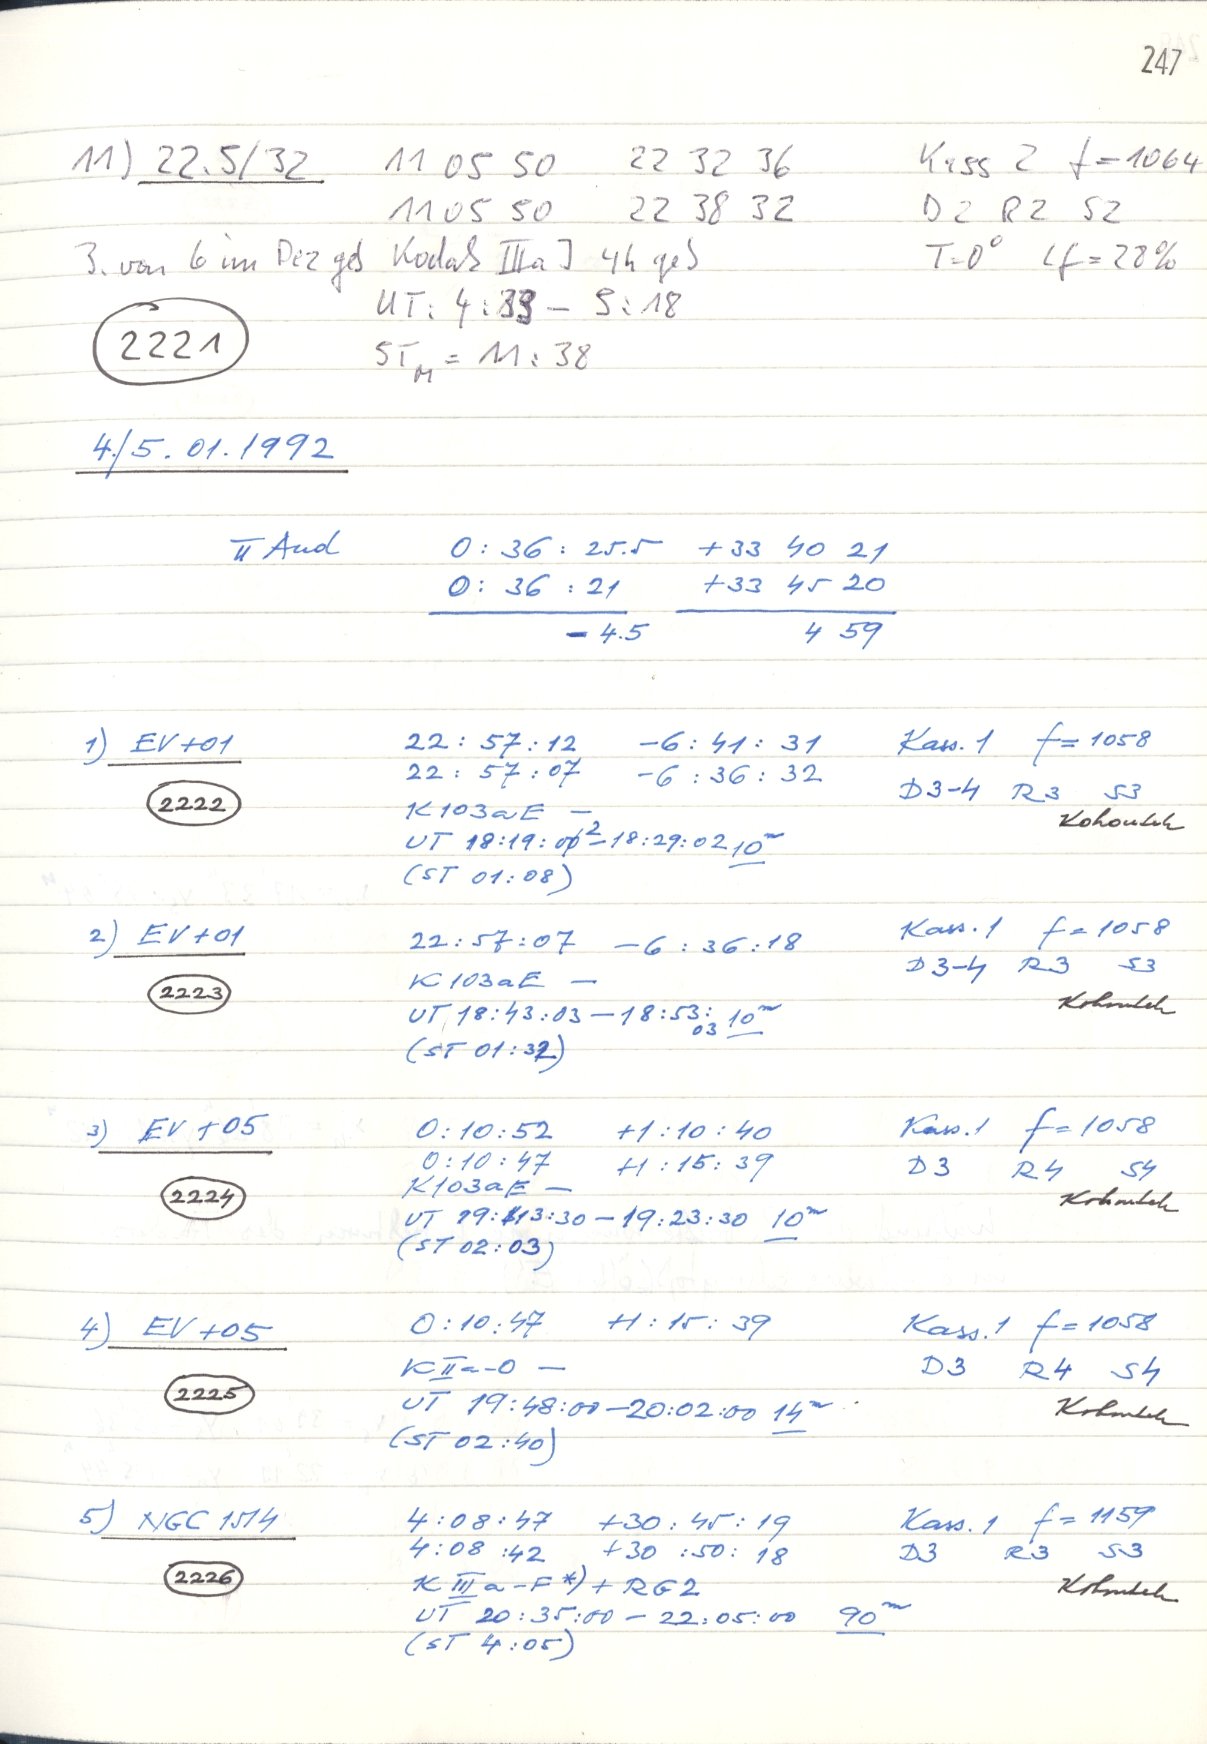 247
11) 22.5/32 11 05 50 22 32 36 Kass 2 f=1064
11 05 50 22 38 32 D2 R2 S2
3. von 6 im Dez geb Kodak IIIaJ 4h geb T=0° Lf=28%
UT: 4:33 – 5:18
2221
ST_M = 11:38
4./5.01.1992
π And 0:36:25.5 +33 40 21
0:36:21 +33 45 20
-4.5 4 59
1) EV+01 22:57:12 -6:41:31 Kass.1 f=1058
22:57:07 -6:36:32
2222 D3-4 R3 S3
K103aE — Kohoutek
UT 18:19:02–18:29:02 10m
(ST 01:08)
2) EV+01 22:57:07 -6:36:18 Kass.1 f=1058
D3-4 R3 S3
2223 K103aE — Kohoutek
UT 18:43:03–18:53:03 10m
(ST 01:32)
3) EV+05 0:10:52 +1:10:40 Kass.1 f=1058
0:10:47 +1:15:39 D3 R4 S4
2224 K103aE — Kohoutek
UT 19:13:30–19:23:30 10m
(ST 02:03)
4) EV+05 0:10:47 +1:15:39 Kass.1 f=1058
KIIa-O — D3 R4 S4
2225 UT 19:48:00–20:02:00 14m Kohoutek
(ST 02:40)
5) NGC 1514 4:08:47 +30:45:19 Kass.1 f=1159
4:08:42 +30:50:18 D3 R3 S3
2226 KIIIa-F*) + RG2 Kohoutek
UT 20:35:00–22:05:00 90m
(ST 4:05)